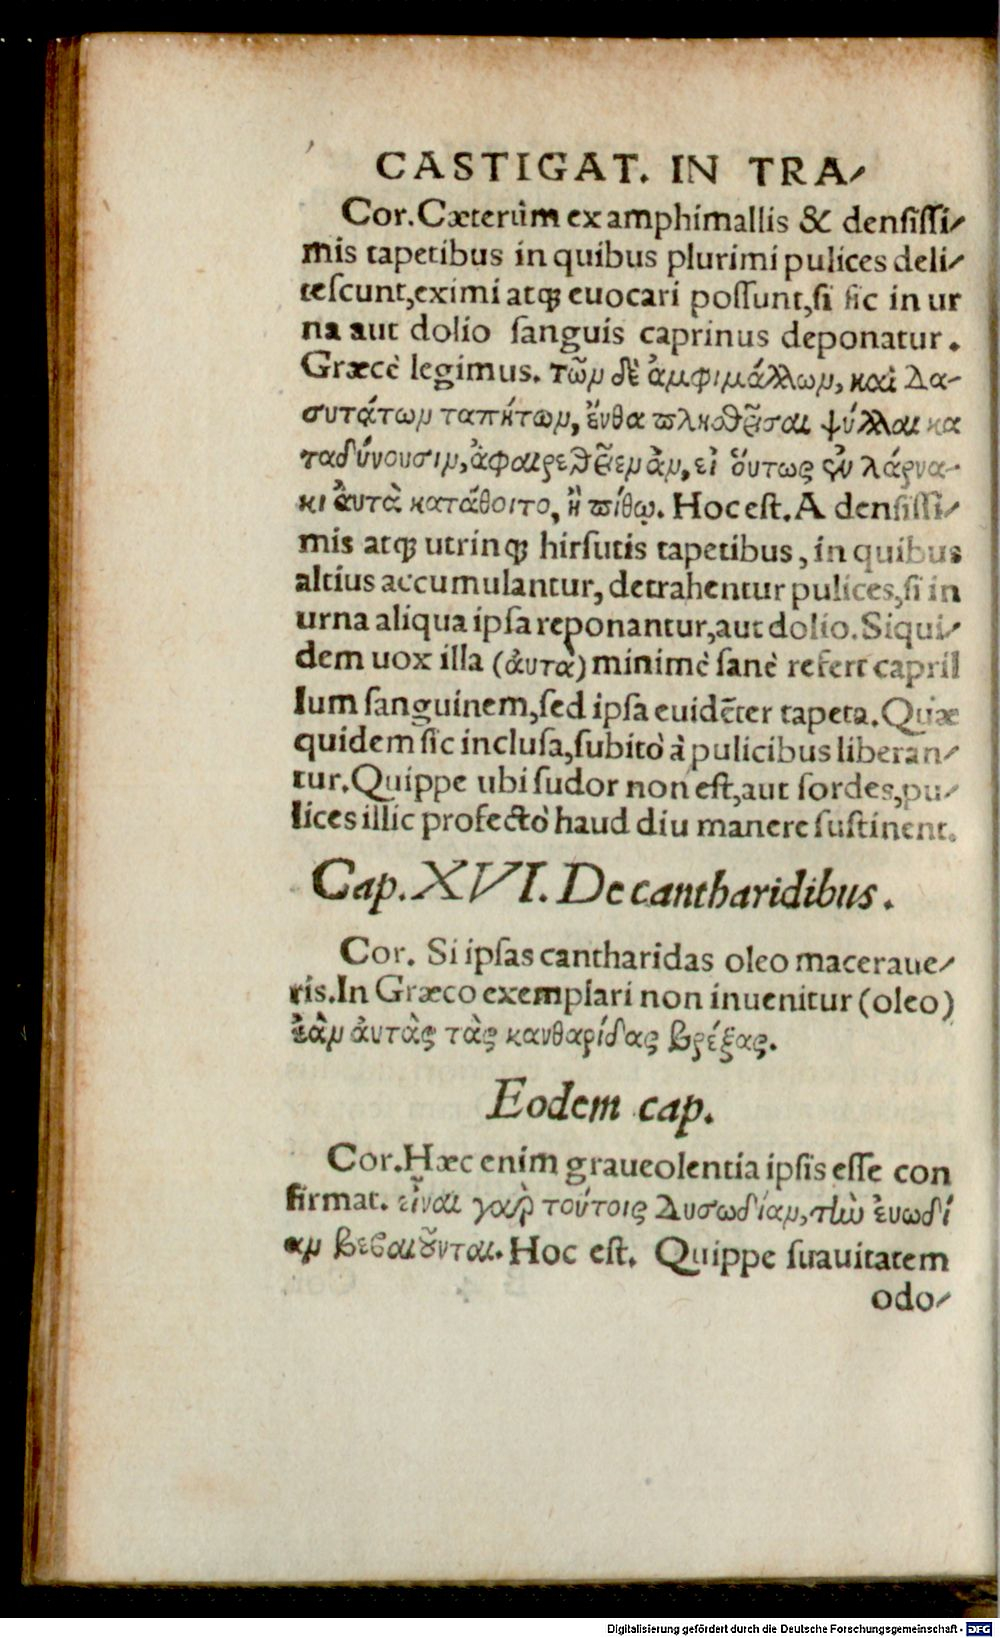 CASTIGAT. IN TRA⸗
Cor. Cæterûm ex amphimallis & densissi⸗
mis tapetibus in quibus plurimi pulices deli⸗
tescunt, eximi atq; euocari possunt, si sic in ur
na aut dolio sanguis caprinus deponatur.
Græcè legimus. τῶν δὲ ἀμφιμάλλων, καὶ δα-
συτάτων ταπήτων, ἔνθα πληθεῖσαι ψύλλαι κα
ταδύνουσιν, ἀφαιρεθεῖεν ἂν, εἰ ὅυτως ἐν λάρνα-
κι ἀυτὰ κατάθοιτο, ἢ πίθῳ. Hoc est. A densissi⸗
mis atq; utrinq; hirsutis tapetibus, in quibus
altius accumulantur, detrahentur pulices, si in
urna aliqua ipsa reponantur, aut dolio. Siqui⸗
dem uox illa (ἀυτὰ) minimè sanè refert capril
lum sanguinem, sed ipsa euidẽter tapeta. Quæ
quidem sic inclusa, subitò à pulicibus liberan⸗
tur. Quippe ubi sudor non est, aut sordes, pu⸗
lices illic profectò haud diu manere sustinent.
Cap. XVI. De cantharidibus.
Cor. Si ipsas cantharidas oleo maceraue⸗
ris. In Græco exemplari non inuenitur (oleo)
ἐὰν ἀυτὰς τὰς κανθαρίδας βρέξας.
Eodem cap.
Cor. Hæc enim graueolentia ipsis esse con
firmat. εἶναι γαὶρ τούτοις δυσωδίαν, τὴν ἐυωδί
αν βεβαιοῦνται. Hoc est. Quippe suauitatem
odo⸗
Digitalisierung gefördert durch die Deutsche Forschungsgemeinschaft - DFG